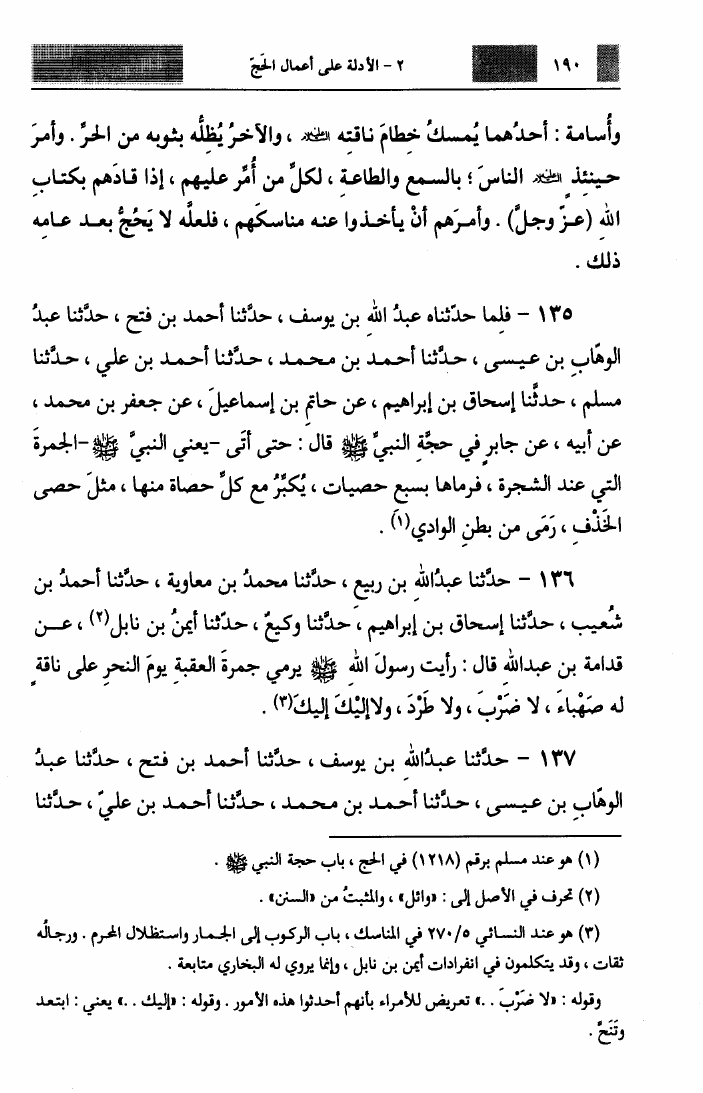 ١٩٠
٢ - الأدلة على أعمال الحَجّ
وأُسامة : أحدُهما يُمسكُ خِطامَ ناقتِه عليه السلام ، والآخرُ يُظِلُّه بثوبه من الحرِّ . وأمرَ
حينئذٍ عليه السلام الناسَ ؛ بالسمع والطاعةِ ، لكلِّ من أُمِّر عليهم ، إذا قادَهم بكتابِ
اللهِ (عزّ وجلَّ) . وأمرَهم أنْ يأخذوا عنه مناسكَهم ، فلعلَّه لا يَحُجُّ بعد عامِه
ذلك .
١٣٥ - فلِما حدّثناه عبدُ اللهِ بن يوسف ، حدَّثنا أحمد بن فتح ، حدَّثنا عبدُ
الوهّابِ بن عيسى ، حدَّثنا أحمد بن محمد ، حدَّثنا أحمد بن علي ، حدَّثنا
مسلم ، حدثَّنا إسحاق بن إبراهيم ، عن حاتمِ بن إسماعيلَ ، عن جعفر بن محمد ،
عن أبيه ، عن جابرٍ في حجَّةِ النبيِّ ﷺ قال : حتى أتَى -يعني النبيَّ ﷺ -الجمرةَ
التي عند الشجرة ، فرماها بسبع حصيات ، يُكبِّرُ مع كلِّ حصاة منها ، مثلَ حصى
الخَذْفِ ، رَمَى من بطنِ الوادي(١) .
١٣٦ - حدَّثنا عبدُاللهِ بن ربيع ، حدَّثنا محمدُ بن معاوية ، حدَّثنا أحمدُ بن
شُعيب ، حدَّثنا إسحاق بن إبراهيم ، حدَّثنا وكيعٌ ، حدّثنا أيمنُ بن نابل(٢) ، عن
قدامة بن عبداللهِ قال : رأيت رسولَ اللهِ ﷺ يرمي جمرةَ العقبةِ يومَ النحرِ على ناقةٍ
له صَهْباءَ ، لا ضَرْبَ ، ولا طَرْدَ ، ولاإليْكَ إليكَ(٣) .
١٣٧ - حدَّثنا عبدُاللهِ بن يوسف ، حدَّثنا أحمد بن فتح ، حدَّثنا عبدُ
الوهّابِ بن عيسى ، حدَّثنا أحمد بن محمد ، حدَّثنا أحمد بن عليّ ، حدَّثنا
(١) هو عند مسلم برقم (١٢١٨) في الحج ، باب حجة النبي ﷺ .
(٢) تحرف في الأصل إلى : «وائل» ، والمثبتُ من «السنن» .
(٣) هو عند النسائي ٢٧٠/٥ في المناسك ، باب الركوب إلى الجمار واستظلال المحرم . ورجالُه
ثقات ، وقد يتكلمون في انفرادات أيمن بن نابل ، وإنما يروي له البخاري متابعة .
وقوله : «لا ضَرْبَ . .» تعريض للأمراء بأنهم أحدثوا هذه الأمور . وقوله : «إليك . .» يعني : ابتعد
وتَنَحَّ .